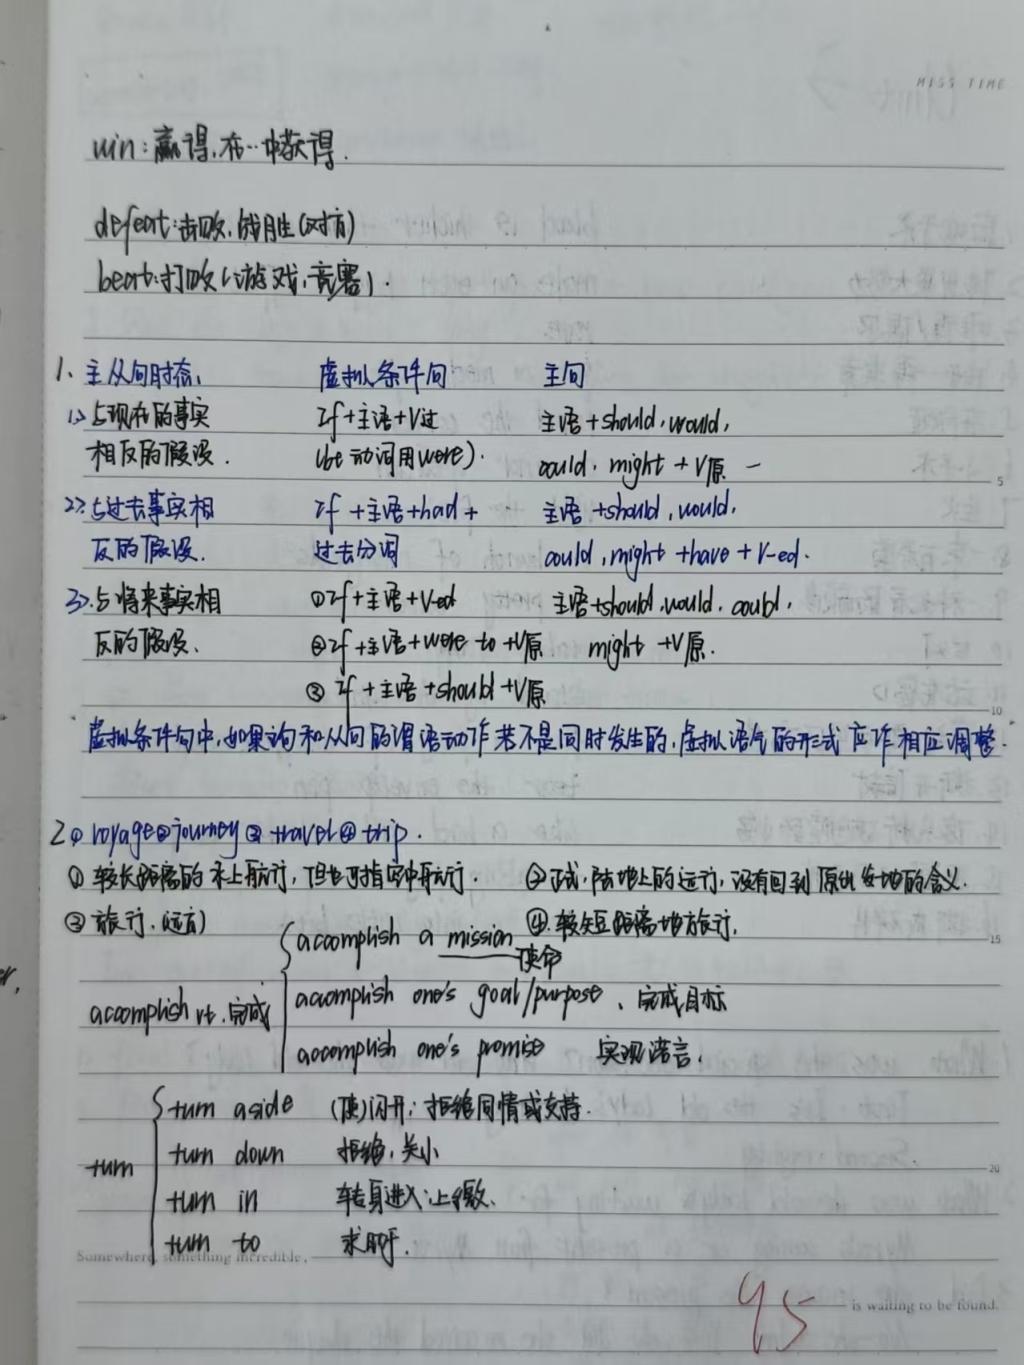 MISS TIME
win：赢得，在…中获得．
defeat：击败，战胜（对方）
beat：打败（游戏，竞赛）．
1、主从句时态， 虚拟条件句 主句
1>与现在的事实 If+主语+V过 主语+should，would，
相反的假设． （be动词用were）． could，might+V原
2>与过去事实相 If+主语+had+ 主语+should，would，
反的假设． 过去分词 could，might+have+V-ed．
3>与将来事实相 ①If+主语+V-ed 主语+should，would，could，
反的假设． ②If+主语+were to+V原 might+V原．
③If+主语+should+V原
虚拟条件句中，如果主句和从句的谓语动作若不是同时发生的，虚拟语气的形式应作相应调整．
2、①voyage②journey③travel④trip．
①较长距离的水上航行，但也可指空中航行． ②正式，陆地上的远行，没有回到原出发地的含义．
③旅行．（远方） ④．较短距离地旅行．
accomplish a mission 使命
accomplish vt．完成 accomplish one's goal/purpose、完成目标
accomplish one's promise 实现诺言．
turn aside （使）闪开；拒绝同情或支持．
turn turn down 拒绝，关小
turn in 转身进入；上缴．
turn to 求助于．
Somewhere, something incredible,
is waiting to be found.
95
5
10
15
20